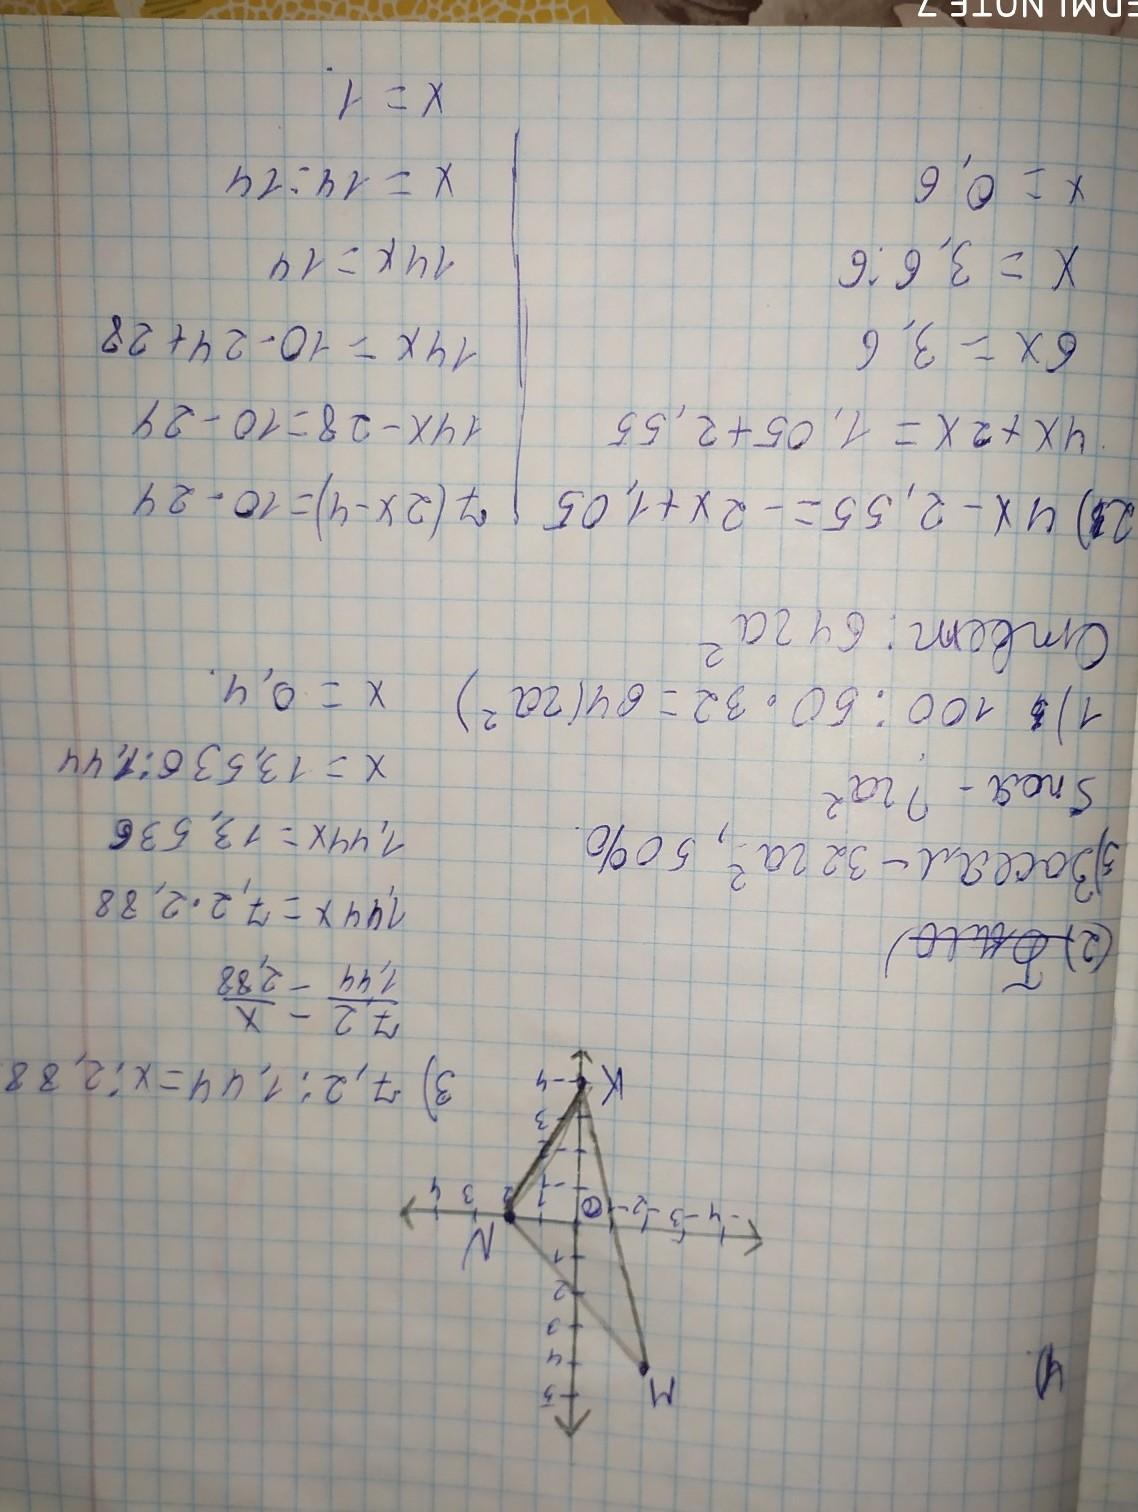 4)
M
5
4
3
2
1
N
-4 -3 -2 0 1 2 3 4
3
-4
K
3) 7,2:1,44=x:2,88
7,2/1,44 - x/2,88
1,44x=7,2·2,88
1,44x=13,536
x=13,536:1,44
x=0,4.
5) Засеял-32га², 50%.
Sпол - ?га²
1) 100:50·32=64(га²)
Ответ: 64га²
2) 4x-2,55=-2x+1,05
4x+2x=1,05+2,55
6x=3,6
x=3,6:6
x=0,6
7(2x-4)=10-24
14x-28=10-24
14x=10-24+28
14x=14
x=14:14
x=1.
EDMI NOTE 7